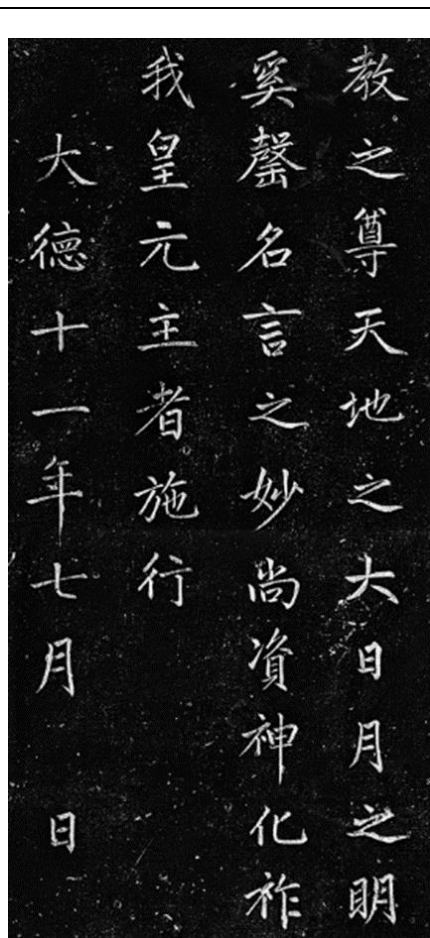 教之尊天地之大日月之明
奚罄名言之妙尚資神化祚
我皇元主者施行
大德十一年七月 日